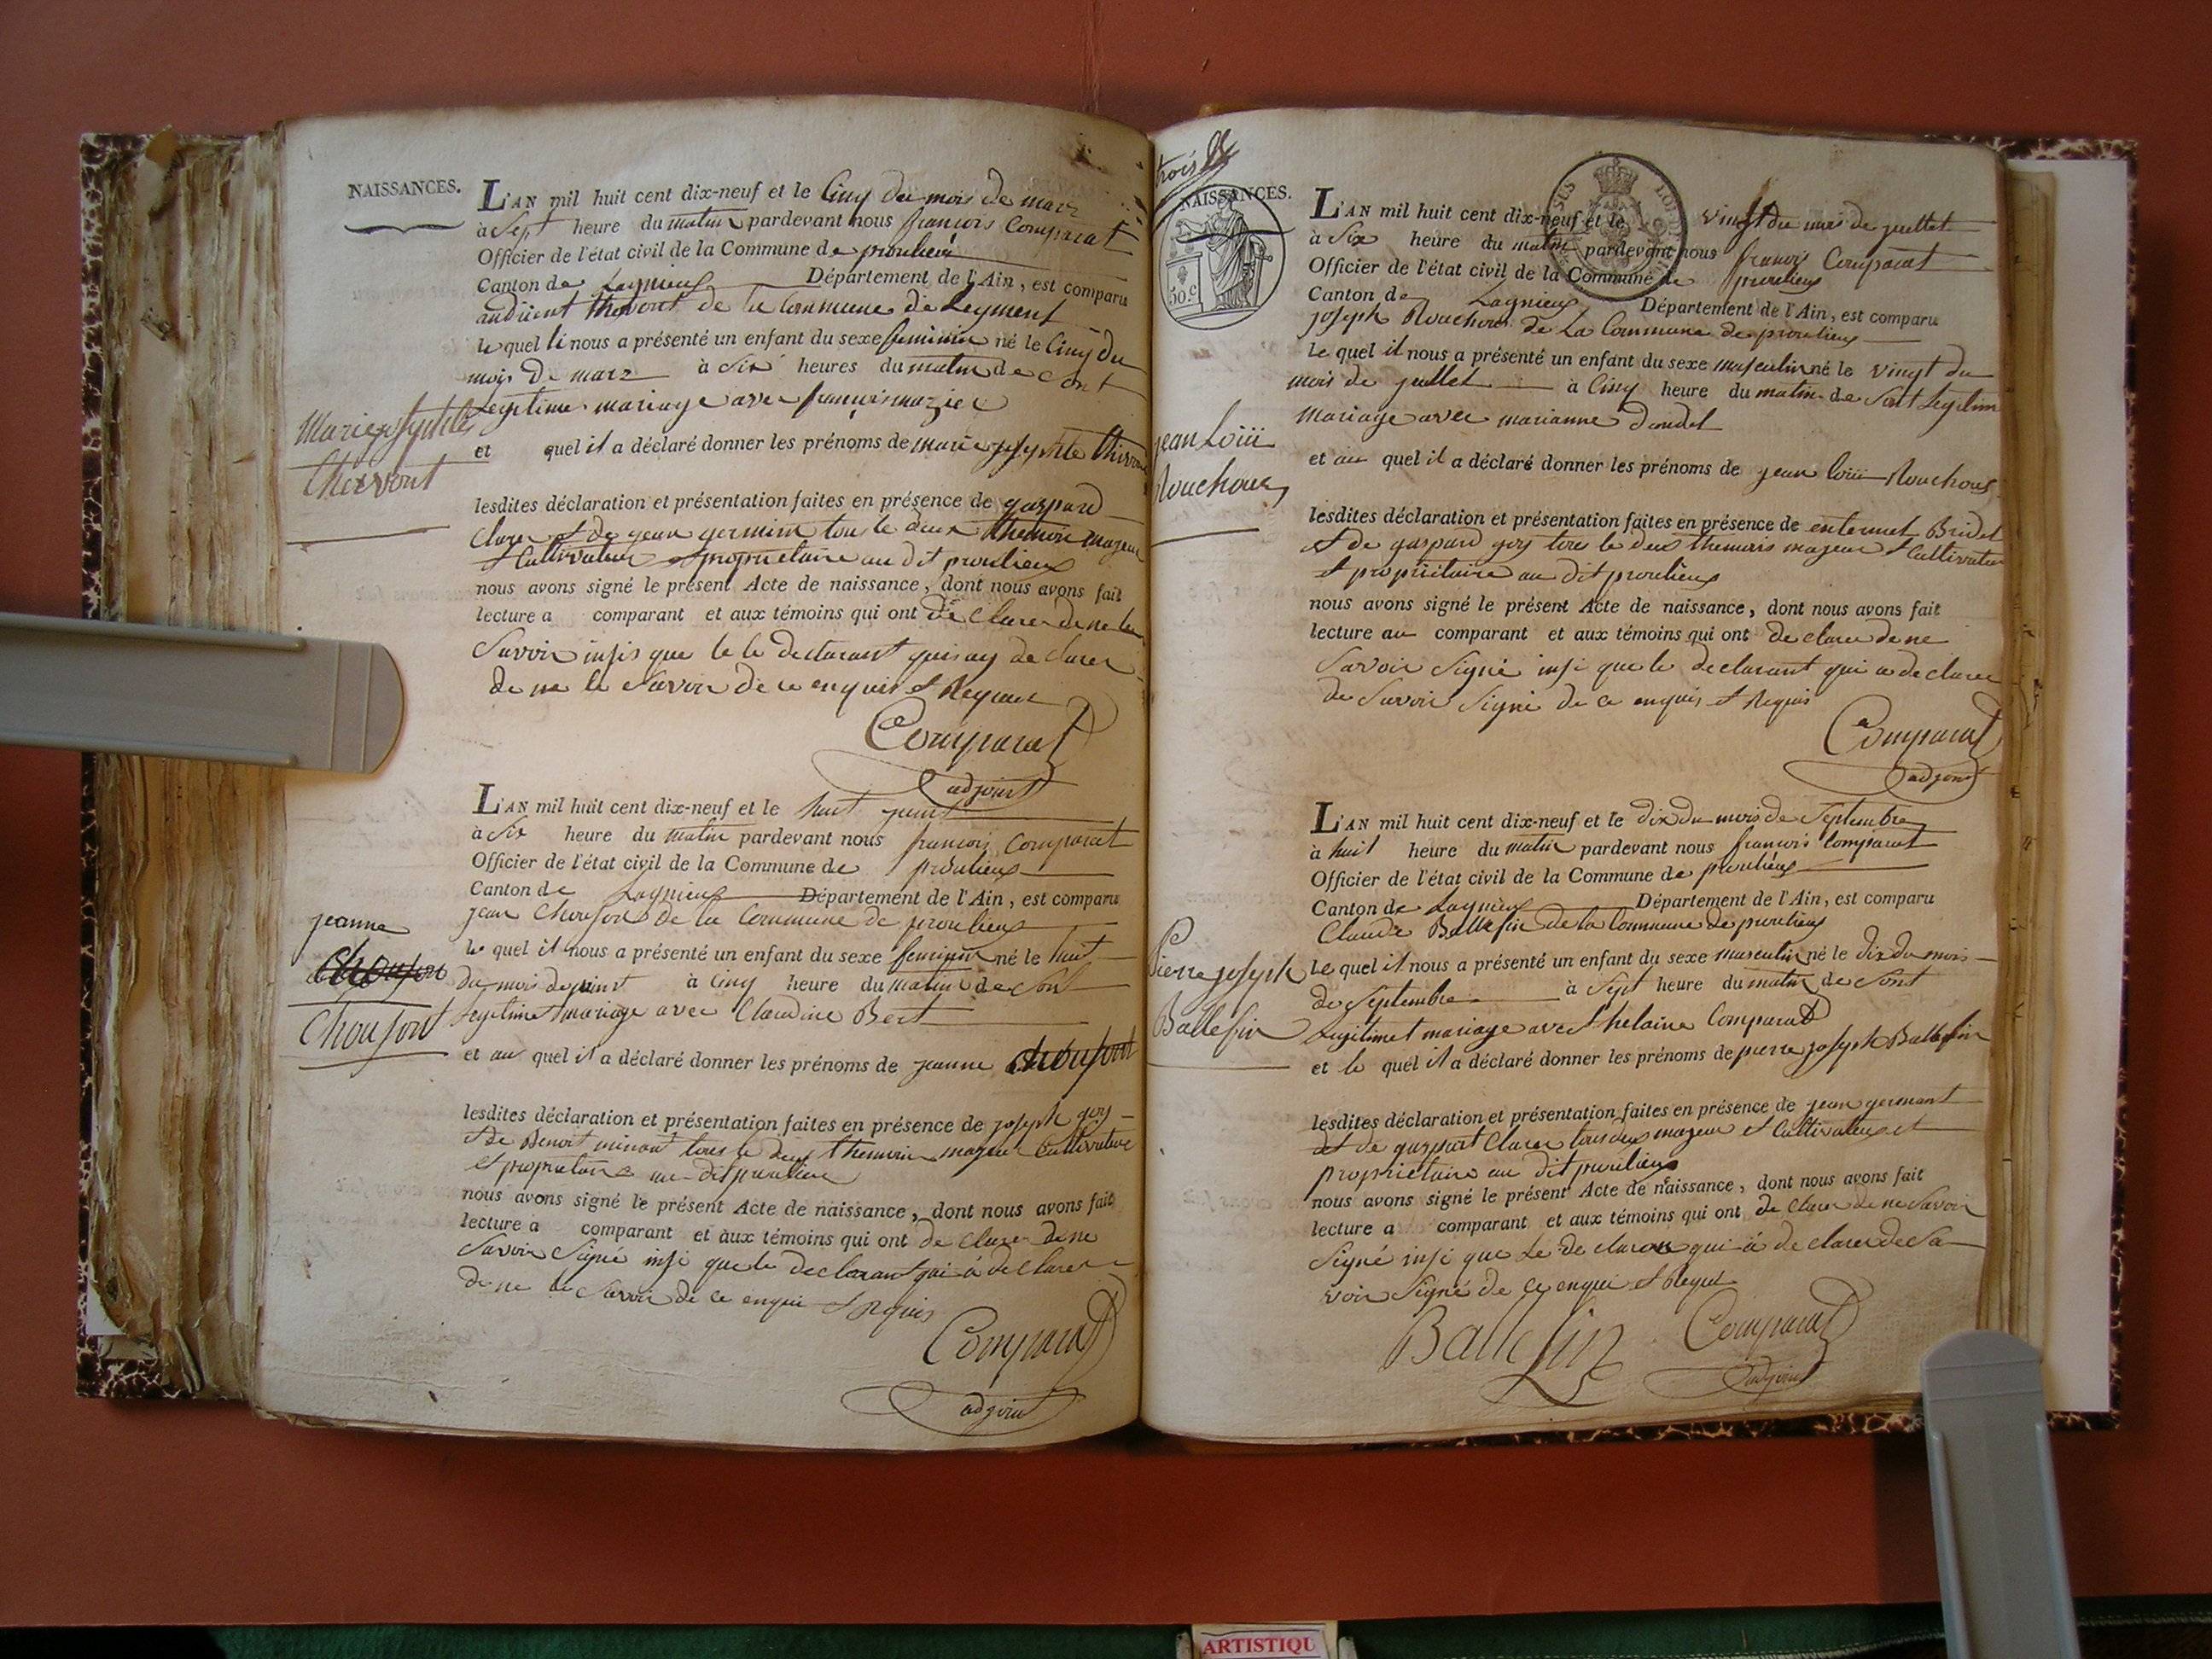 NAISSANCES.
L'AN mil huit cent dix-neuf et le Cinq du mois de marz
à Sept heure du matin pardevant nous françois Comparat
Officier de l'état civil de la Commune de proulieu
Canton de Lagnieux Département de l'Ain, est comparu
thervont de la Commune de Leyment
le quel il nous a présenté un enfant du sexe feminin né le Cinq du
mois de marz à Six heures du matin de Sont
Legitime mariage avec françois mazier
et quel il a déclaré donner les prénoms de marie
lesdites déclaration et présentation faites en présence de gaspard
Claret et de jean germint tous le deux themoin mageur
et Cultivateur et proprietaire au dit proulieux
nous avons signé le présent Acte de naissance, dont nous avons fait
lecture a comparant et aux témoins qui ont de Clarer de ne le
Savoir insis que le le declarant de clarer
de ne le Savoir de ce enquis et Requis
Comparat
adjoint
Thervont
L'AN mil huit cent dix-neuf et le huit juint
à Six heure du matin pardevant nous francois Comparat
Officier de l'état civil de la Commune de proulieux
Canton de Lagnieux Département de l'Ain, est comparu
jean Choufont de la Commune de proulieux
le quel il nous a présenté un enfant du sexe feminin né le huit
du mois de juint à Cinq heure du matin de Sont
Legitime mariage avec Claudine Bert
et au quel il a déclaré donner les prénoms de jeanne Choufont
lesdites déclaration et présentation faites en présence de joseph goy
et de Benoit minant tous le deux themoin mageur Cultivateur
et proprietaire au dit proulieux
nous avons signé le présent Acte de naissance, dont nous avons fait
lecture a comparant et aux témoins qui ont de Clarer de ne
Savoir Signé insi que le declarant qui a de Clarer
de ne le Savoir de ce enqui et Requis
Comparat
adjoint
jeanne
Choufont
trois
NAISSANCES.
50.c
L'AN mil huit cent dix-neuf et le vingt du mois de juillet
à Six heure du matin pardevant nous francois Comparat
Officier de l'état civil de la Commune de proulieux
Canton de Lagnieux Département de l'Ain, est comparu
joseph Rouchous de La Commune de proulieux
le quel il nous a présenté un enfant du sexe masculin né le vingt du
mois de juillet à Cinq heure du matin de Sont Legitim
mariage avec marianne
et au quel il a déclaré donner les prénoms de jean loüi Rouchous
lesdites déclaration et présentation faites en présence de Bridet
et de gaspard goy tous le deux themoins mageur et Cultivateur
et proprietaire au dit proulieux
nous avons signé le présent Acte de naissance, dont nous avons fait
lecture au comparant et aux témoins qui ont de clarer de ne
Savoir Signé insi que le declarant qui a declarer
de Savoir Signé de ce enquis et Requis
Comparat
adjoint
jean Loüi
Rouchous
L'AN mil huit cent dix-neuf et le dix du mois de Septembre
à huit heure du matin pardevant nous francois Comparat
Officier de l'état civil de la Commune de proulieux
Canton de Lagnieux Département de l'Ain, est comparu
Claude Ballefin de la Commune de proulieux
le quel il nous a présenté un enfant du sexe masculin né le dix du mois
de Septembre à Sept heure du matin de Sont
Legitimet mariage avec helaine Comparat
et le quel il a déclaré donner les prénoms de pierre joseph Ballefin
lesdites déclaration et présentation faites en présence de jean germant
et de gaspart Claret tous deux mageur et Cultivateur et
proprietaire au dit proulieux
nous avons signé le présent Acte de naissance, dont nous avons fait
lecture a comparant et aux témoins qui ont de Clarer de ne Savoir
Signé insi que le de clarant qui a de clarer de Sa
voir Signé de ce enqui et Requi
Ballefin Comparat
adjoint
Pierre joseph
Ballefin
ARTISTIQU